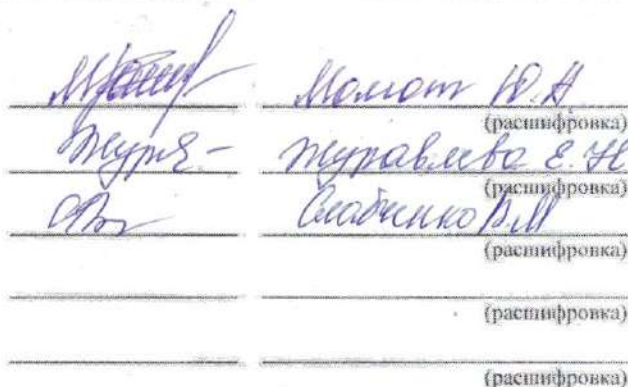 Момот Ю.А.
(расшифровка)
Журавлева Е.Н
(расшифровка)
Слабченко В.М
(расшифровка)
(расшифровка)
(расшифровка)